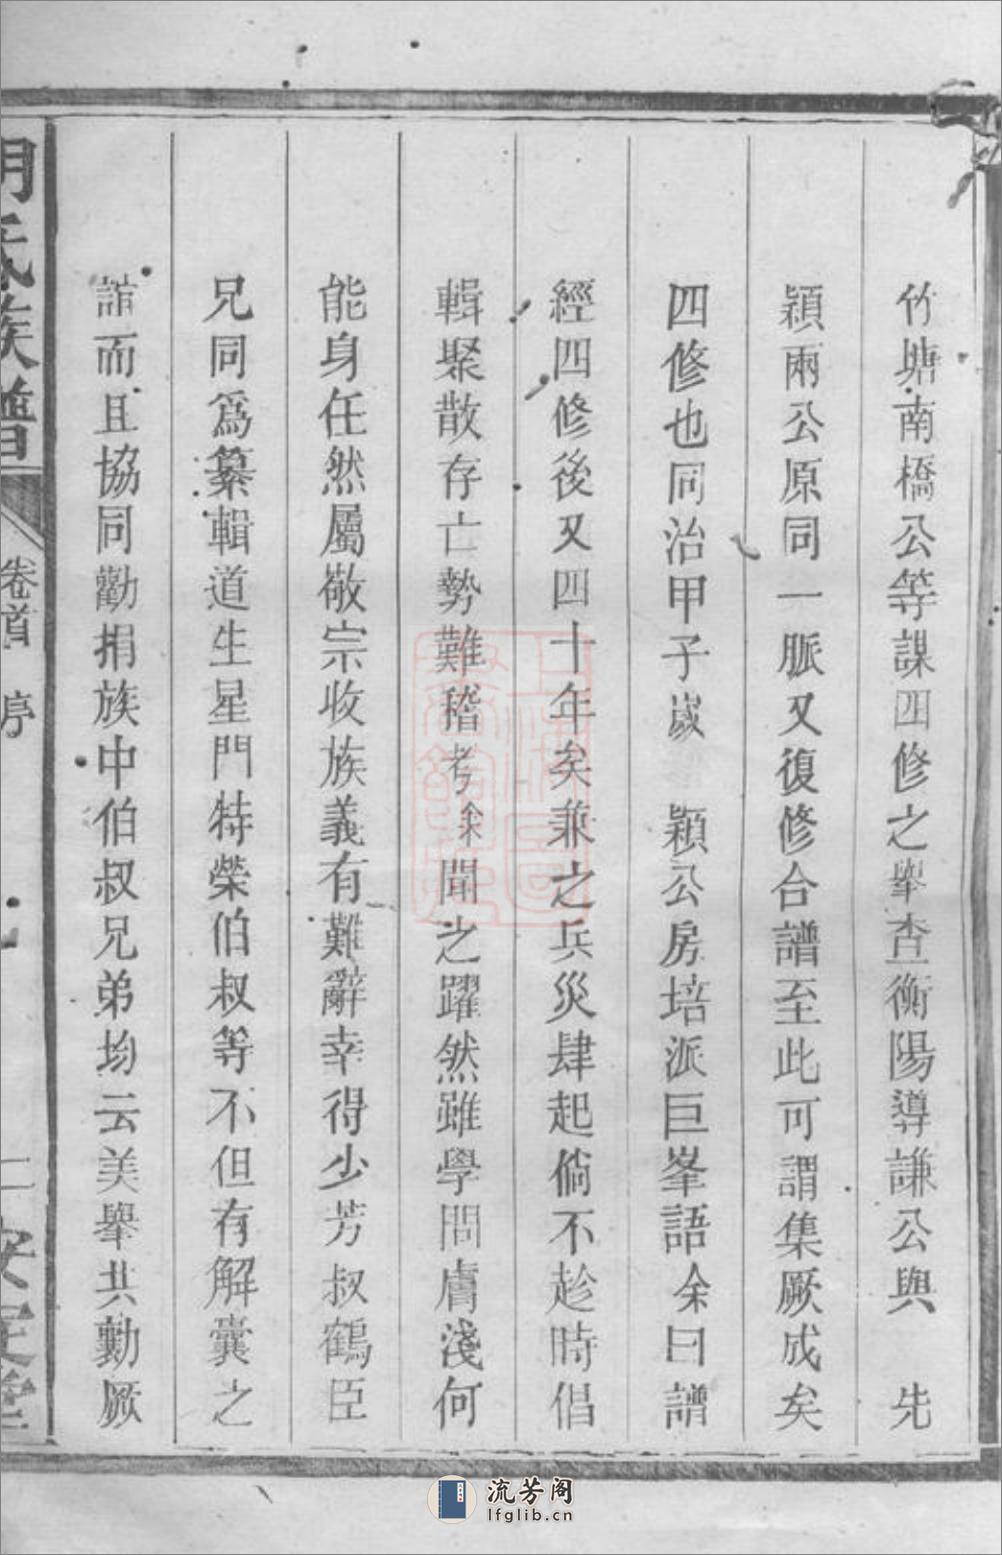 竹塘南橋公等謀四修之舉查衡陽導謙公與　先
穎兩公原同一脈又復修合譜至此可謂集厥成矣
四修也同治甲子歲　穎公房培派巨峯語余曰譜
經四修後又四十年矣兼之兵災肆起倘不趁時倡
輯聚散存亡勢難稽考余聞之躍然雖學問膚淺何
能身任然屬敬宗收族義有難辭幸得少芳叔鶴臣
兄同爲纂輯道生星門特榮伯叔等不但有解囊之
誼而且協同勸捐族中伯叔兄弟均云美舉共勷厥
胡氏族譜
卷首　序
二　安定堂
上海圖書館藏
流芳阁
lfglib.cn